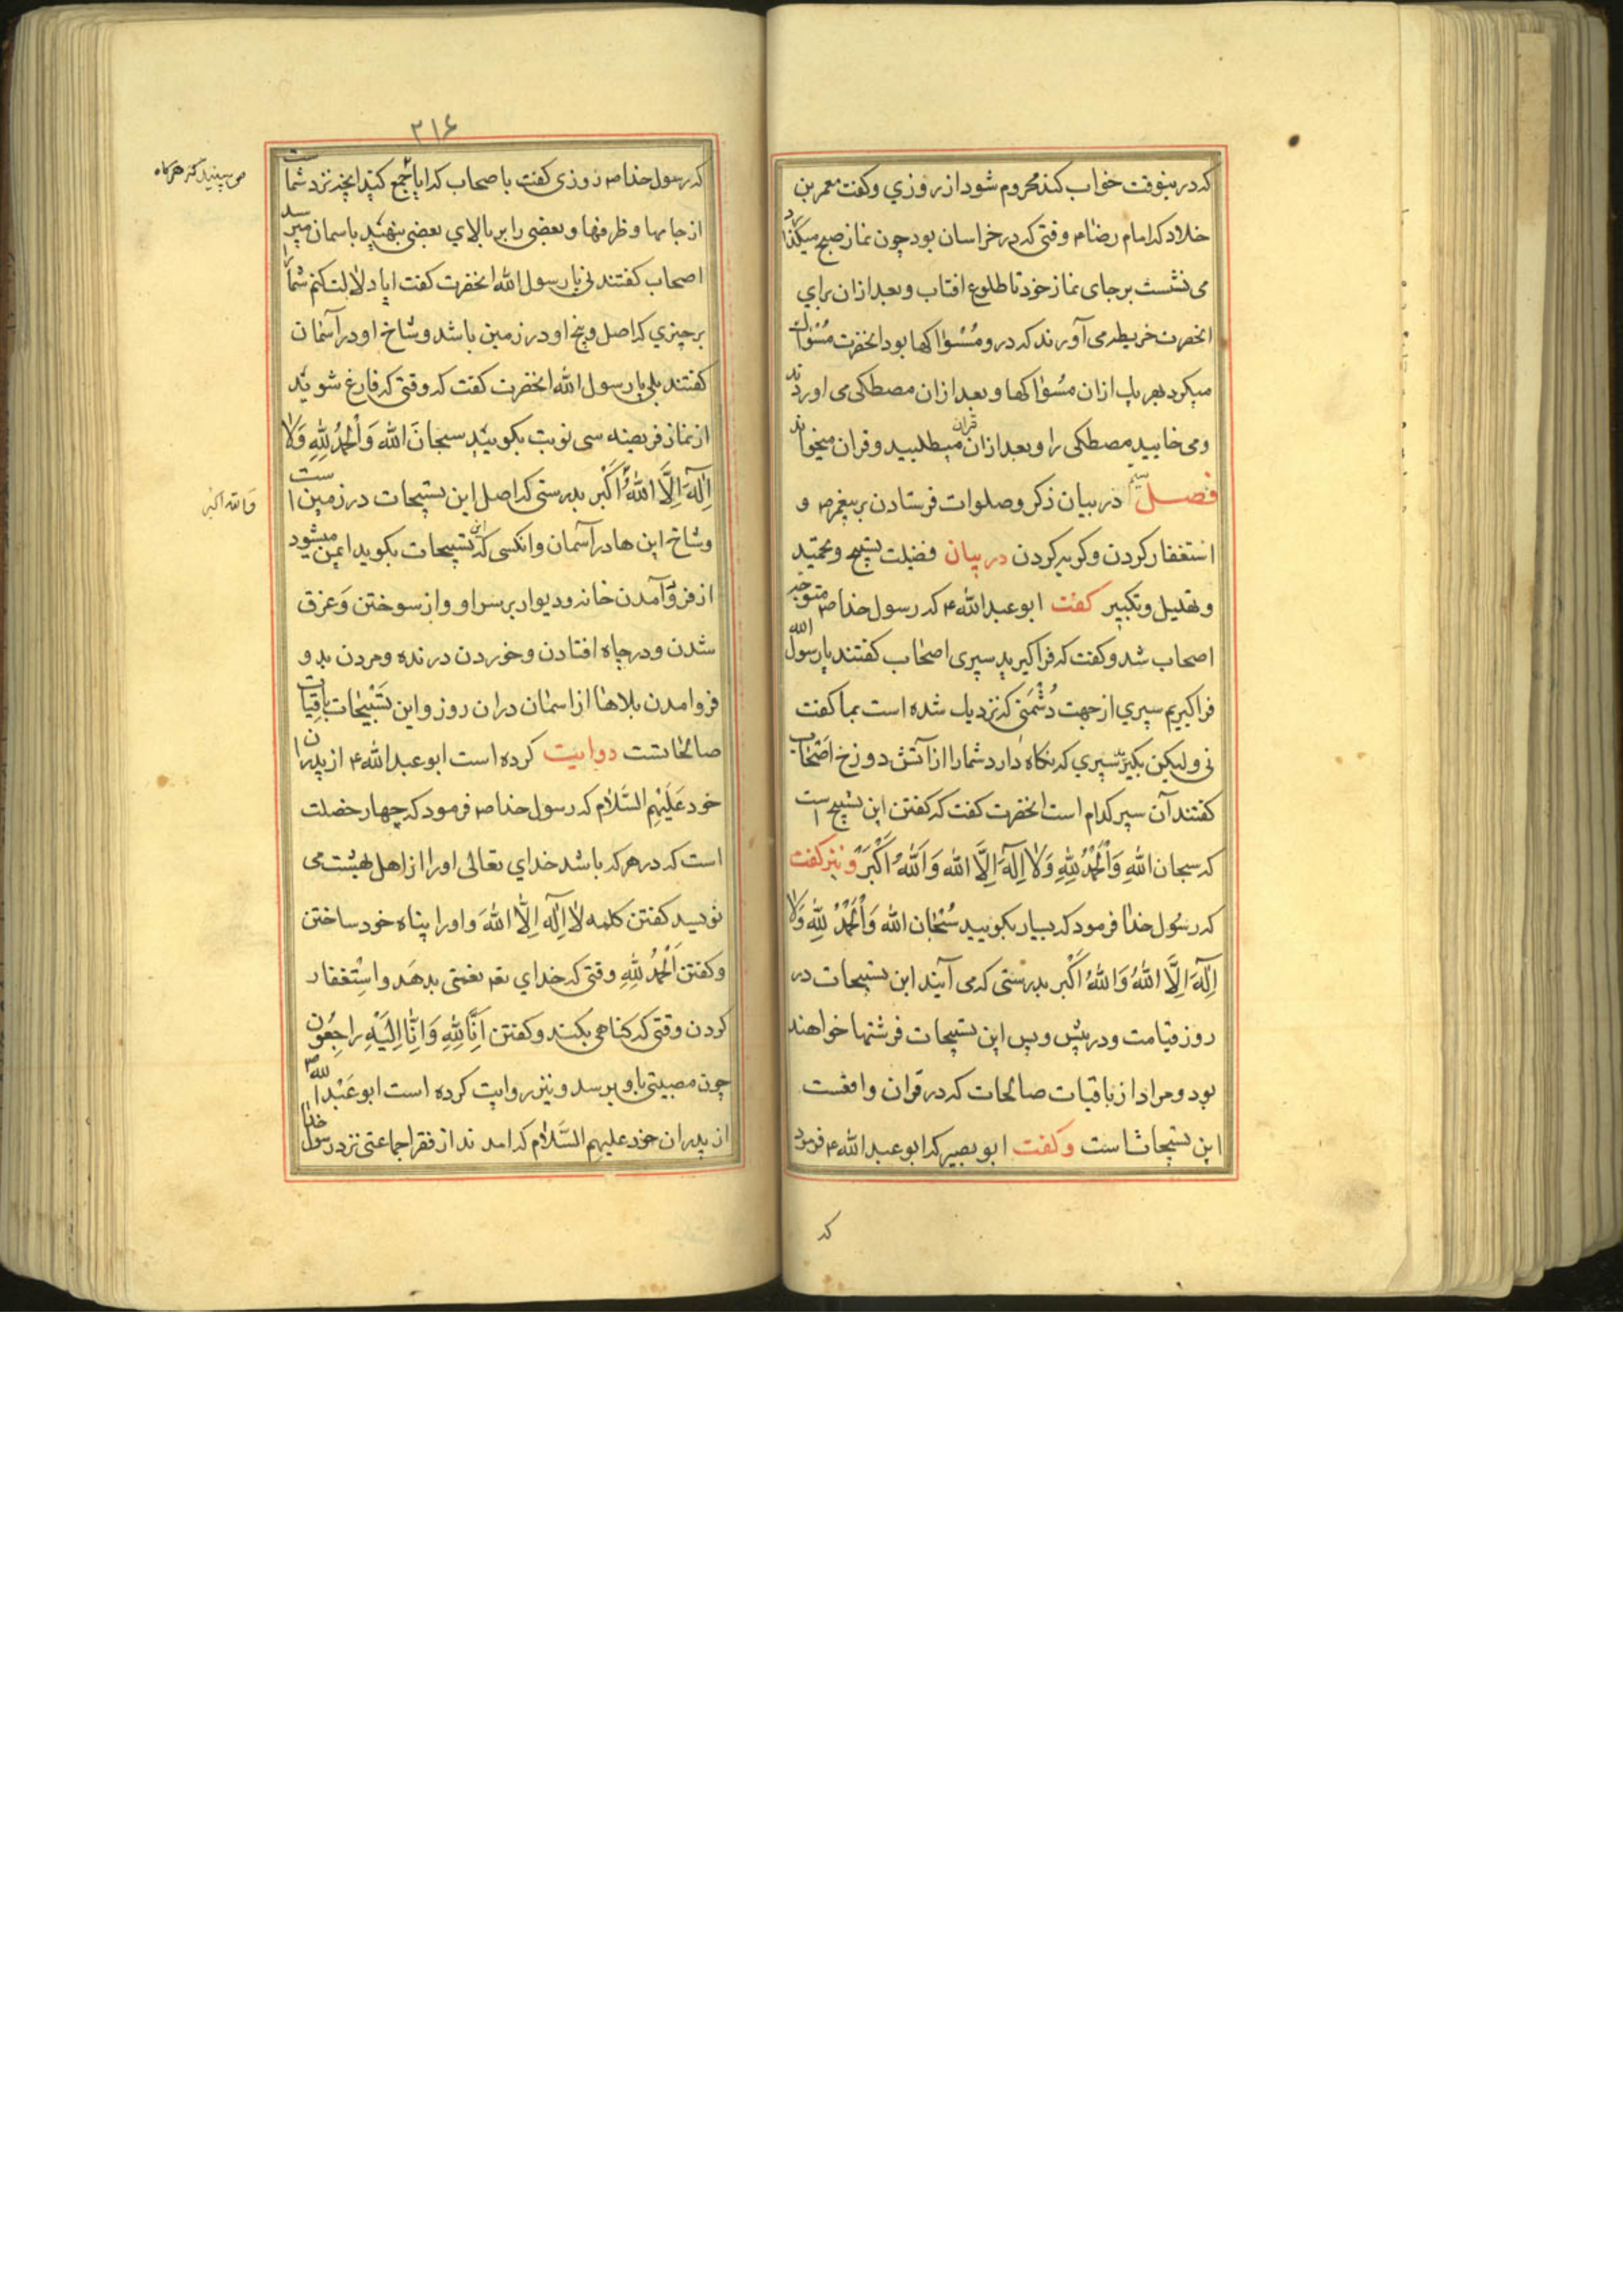 که درینوقت خواب کند محروم شود از روزي وکفت معمر بن
خلاد که امام رضا م وقتی که در خراسان بود چون نماز صبح میکذارد
می نشست بر جای نماز خود تا طلوع افتاب و بعد ازان برای
انحضرت خریطه می آورند که در و مسواکها بود انحضرت مسواک
میکرد بهر یک ازان مسواکها و بعد ازان مصطکی می اوردند
ومی خایید مصطکی را و بعد ازان قران میطلبید و قران میخواند
فصل در بیان ذکر و صلوات فرستادن بر پیغمبر ص و
استغفار کردن و کریه کردن در بیان فضیلت تسبیح و تحمید
و تهلیل و تکبیر کفت ابو عبد الله ۴ که رسول خدا ص متوجه
اصحاب شد و کفت که فرا کیرید سپری اصحاب کفتند یا رسول الله
فرا کیریم سپري از جهت دُشْمَنی که نزدیک شده است بما کفت
نی ولیکن بکیرید سپري که نکاه دارد شما را از آتش دوزخ اصحاب
کفتند آن سپر کدام است انحضرت کفت که کفتن این تسبیح است
که سبحان اللهِ وَالْحَمْدُ لِلّهِ وَلا اِلهَ اِلَّا الله وَاَللهُ اَکْبَر و نیز کفت
که رسُول خدا فرمود که بسیار بکویید سُبْحان الله وَالْحَمْدُ لِلّهِ وَلا
اِلهَ اِلَّا اللهُ وَاللهُ اَکْبر بدرستی که می آیند این تسبیحات در
روز قیامت و در پیش و پس این تسبیحات فرشتها خواهند
بود و مراد از باقیات صالحات که در قران واقعست
این تسبیحاتست وکفت ابو بصیر که ابو عبد الله ۴ فرمود
که
۲۱۶
که رسول خدا ص روزی کفت با اصحاب که ایا جمع کنید انچه نزد شماست
از جامها و ظرفها و بعضی را بر بالاي بعضی بنهید باسمان میرسد
اصحاب کفتند نی یا رسول الله انحضرت کفت ایا دلالت کنم شما را
بر چیزي که اصل و بیخ او در زمین باشد و شاخ او در آسمان
کفتند بلی یا رسول الله انحضرت کفت که وقتی که فارغ شوید
از نماز فریضه سی نوبت بکویید سبحانَ الله وَالْحَمْدُ لِلّهِ وَلا
اِلهَ اِلَّا اللهُ اَکْبر بدرستی که اصل این تسبیحات در زمین است
وَالله اکبر
و شاخ این ها در آسمان و انکسی که این تسبیحات بکوید ایمن میشود
از فرو آمدن خانه و دیوار بر سر او و از سوختن وَغرق
شدن و در چاه افتادن و خوردن درنده و مردن بد و
فرو امدن بلاها از اسمان دران روز و این تَسْبیحات باقیات
صالحاتست روایت کرده است ابو عبد الله ۴ از پدران
خود عَلَیْهِم السَّلام که رسول خدا ص فرمود که چهار خصلت
است که در هر که باشد خداي تعالی او را از اهل بهشت می
نویسد کفتن کلمه لا اِلهَ اِلّا اللهَ و او را پناه خود ساختن
و کفتن اَلْحَمْدُ لِلّهِ وقتی که خداي تعم نعمتی بدهَد و اسْتِغفار
کردن وقتی که کناهی بکند و کفتن اِنَّا لِلّهِ وَاِنَّا اِلَیْهِ راجِعُون
چون مصیبتی باو برسد و نیز روایت کرده است ابو عَبْد الله
از پدران خود علیهم السَّلام که امدند از فقرا جماعتی نزد رسول خدا